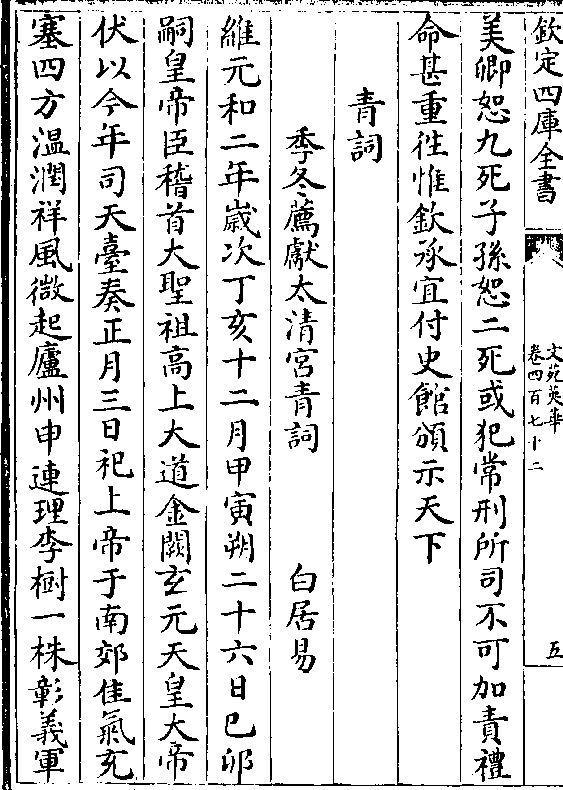 欽定四庫全書
文苑英華
卷四百七十二
五
美卿恕九死子孫恕二死或犯常刑所司不可加責禮
命甚重徃惟欽承宜付史館頒示天下
青詞
季冬薦獻太清宮青詞
白居易
維元和二年歳次丁亥十二月甲寅朔二十六日巳卯
嗣皇帝臣稽首大聖祖高上大道金闕玄元天皇大帝
伏以今年司天臺奏正月三日祀上帝于南郊佳氣充
塞四方溫潤祥風微起廬州申連理李樹一株彰義軍